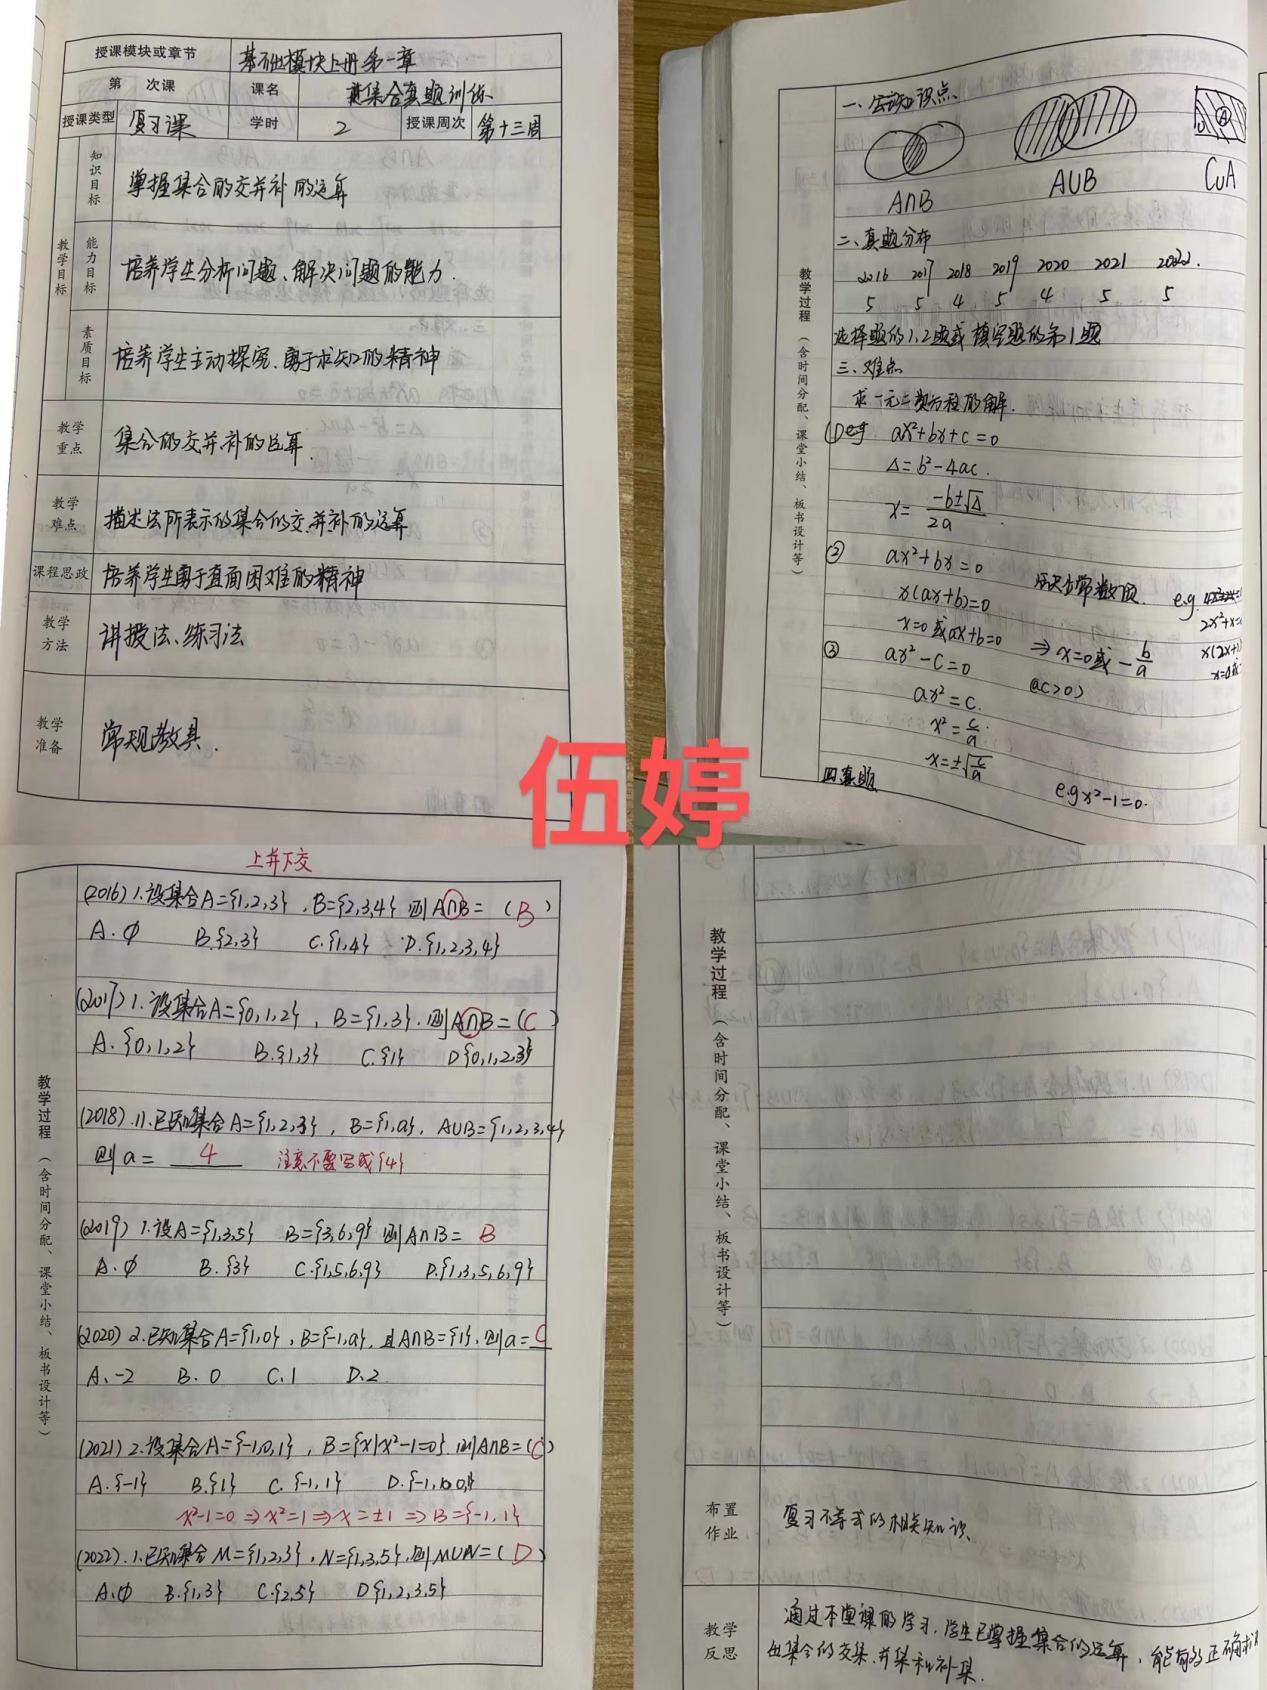 授课模块或章节 基础模块上册第一章
第 次课 课名 集合真题训练
授课类型 复习课 学时 2 授课周次 第十三周
教学目标
知识目标 掌握集合的交并补的运算
能力目标 培养学生分析问题、解决问题的能力.
素质目标 培养学生主动探究、勇于求知的精神
教学重点 集合的交并补的运算.
教学难点 描述法所表示的集合的交并补的运算
课程思政 培养学生勇于直面困难的精神
教学方法 讲授法、练习法
教学准备 常规教具.
教学过程(含时间分配、课堂小结、板书设计等)
A∩B A∪B CuA
二、真题分布
2016 2017 2018 2019 2020 2021 2022.
5 5 4 5 4 5 5
选择题的1、2题或填空题的第1题
三、难点
求一元二次方程的解.
① eg ax²+bx+c=0
Δ=b²-4ac.
x=(-b±√Δ)/2a.
② ax²+bx=0
x(ax+b)=0 e.g.
x=0或ax+b=0 ⇒x=0或-b/a
2x²+x=
x(2x+
③ ax²-c=0 (ac>0)
ax²=c.
x²=c/a.
x=±√(c/a)
四真题 e.g x²-1=0.
伍婷
上并下交
教学过程(含时间分配、课堂小结、板书设计等)
(2016)1.设集合A={1,2,3},B={2,3,4}则A∩B=(B)
A.∅ B.{2,3} C.{1,4} D.{1,2,3,4}
(2017)1.设集合A={0,1,2},B={1,3}.则A∩B=(C)
A.{0,1,2} B.{1,3} C.{1} D{0,1,2,3}
(2018).11.已知集合A={1,2,3},B={1,a},A∪B={1,2,3,4}
则a=4 注意不要写成{4}
(2019)1.设A={1,3,5} B={3,6,9}则A∩B= B
A.∅ B.{3} C.{1,5,6,9} D.{1,3,5,6,9}
(2020)2.已知集合A={1,0},B={-1,a},且A∩B={1},则a=C
A、-2 B.0 C.1 D.2
(2021)2.设集合A={-1,0,1},B={x|x²-1=0}.则A∩B=(C)
A.{-1} B.{1} C.{-1,1} D.{-1,
x²-1=0⇒x²=1⇒x=±1⇒B={-1,1}
(2022).1.已知集合M={1,2,3},N={1,3,5},则M∪N=(D)
A.∅ B.{1,3} C.{2,5} D{1,2,3,5}
教学过程(含时间分配、课堂小结、板书设计等)
布置作业 复习不等式的相关知识.
教学反思 通过本堂课的学习,学生已掌握集合的运算,能够正确求
出集合的交集、并集和补集.